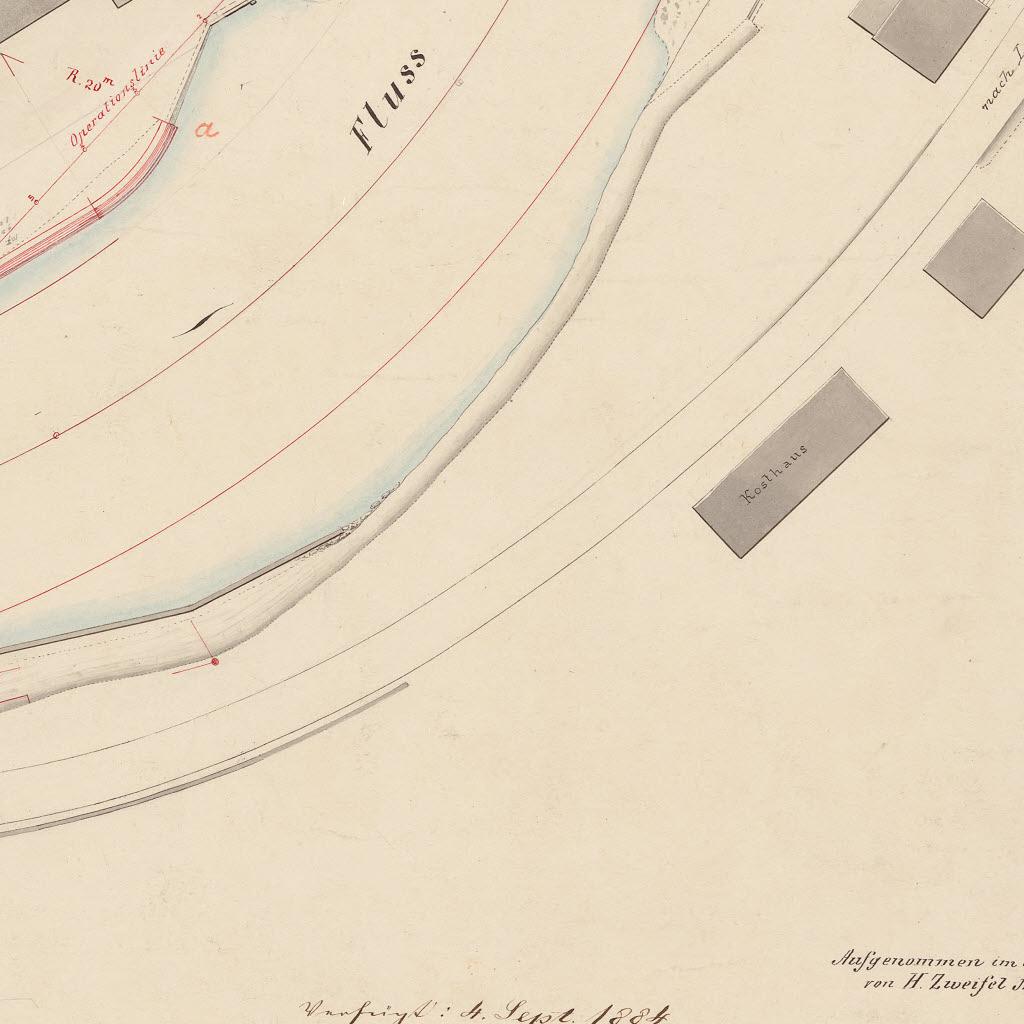 R. 20 m
Operationslinie
a
Fluss
nach
Kosthaus
Aufgenommen im
von H. Zweifel
Verfügt: 4. Sept. 1884